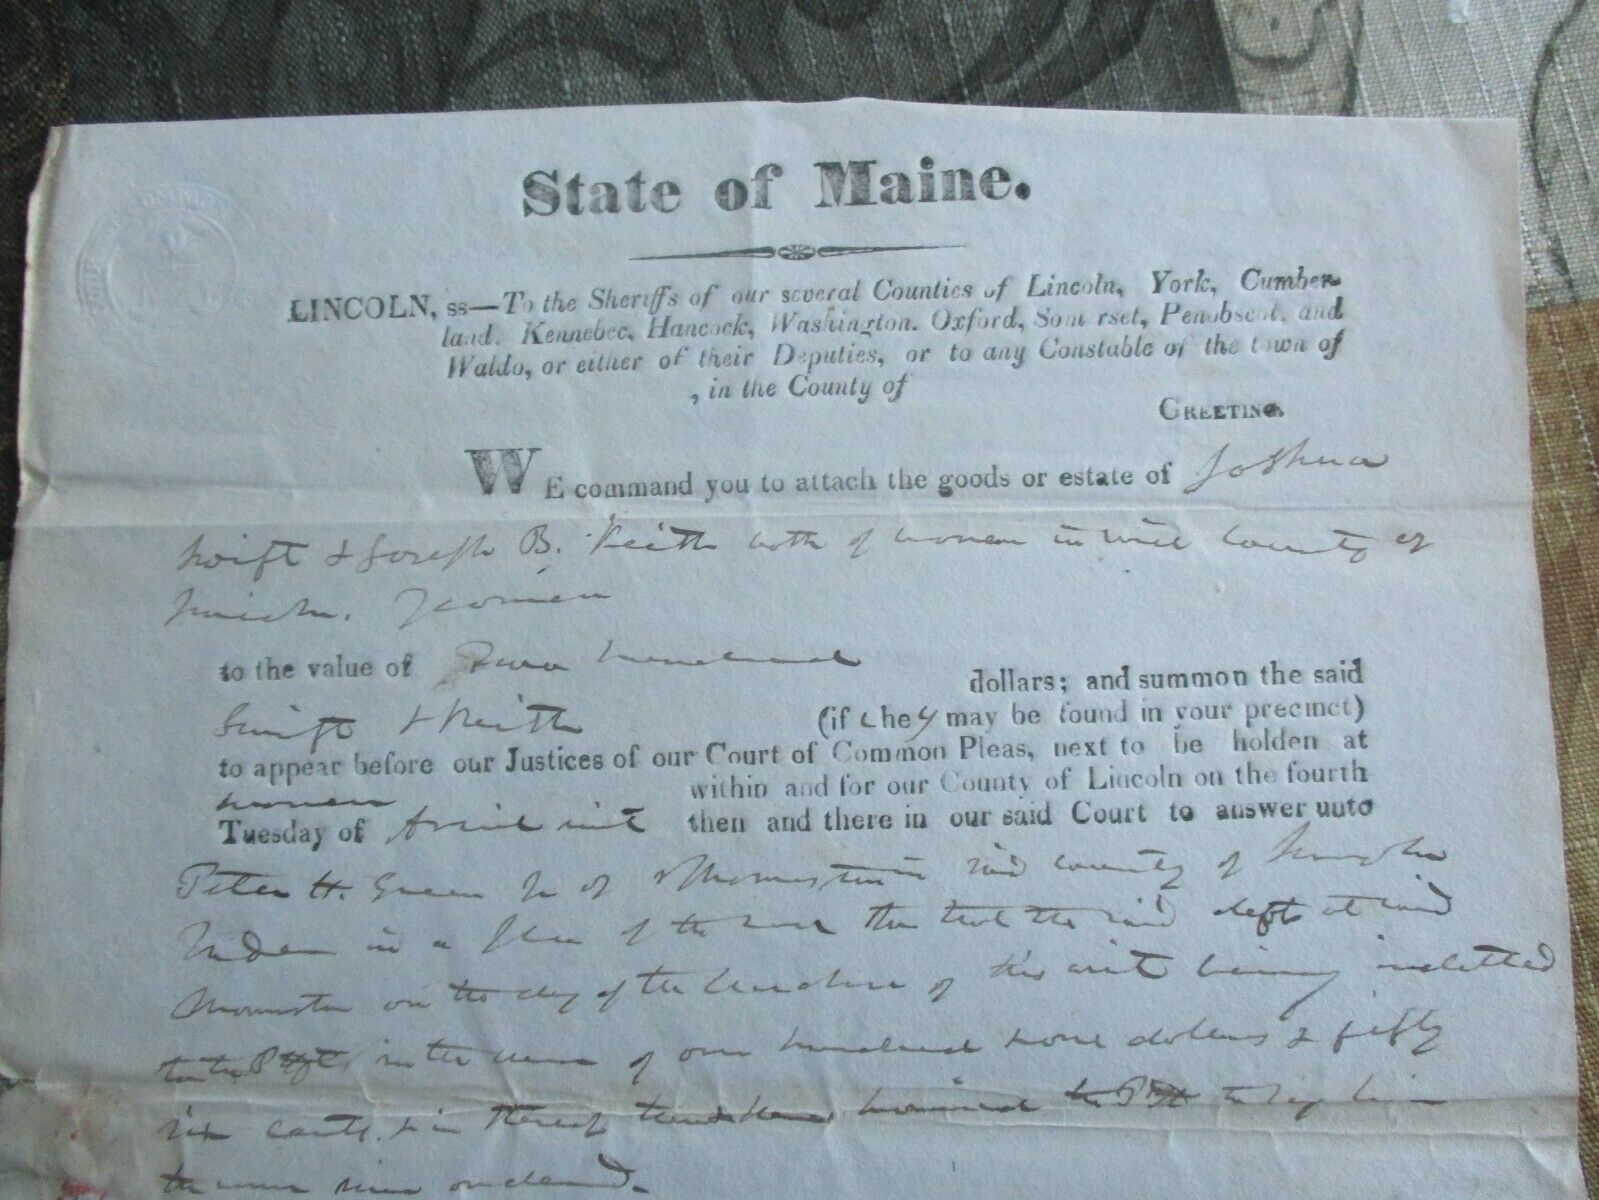 State of Maine.
LINCOLN, ss—To the Sheriffs of our several Counties of Lincoln, York, Cumber-
land, Kennebec, Hancock, Washington, Oxford, Somerset, Penobscot, and
Waldo, or either of their Deputies, or to any Constable of the town of
, in the County of
GREETING.
WE command you to attach the goods or estate of Joshua
Swift & Joseph B. Keith both of Warren in said County of
Lincoln. Yeomen
to the value of Two hundred
dollars; and summon the said
Swift & Keith (if they may be found in your precinct)
to appear before our Justices of our Court of Common Pleas, next to be holden at
Warren within and for our County of Lincoln on the fourth
Tuesday of April inst then and there in our said Court to answer unto
Peter H. Green Jr of Thomaston in said County of Lincoln
in a plea of the case for that the said defts at said
Thomaston on the day of the purchase of this writ being indebted
to the Plff in the sum of one hundred dollars & fifty
six cents, & in thereof promised the Plff to pay him
the same sum on demand.